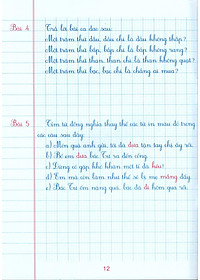 Bài 4 Trả lời bài ca dao sau:
Một trăm thứ dầu, dầu chi là dầu không thắp?
Một trăm thứ bắp, bắp chi là bắp không rang?
Một trăm thứ than, than chi là than không quạt?
Một trăm thứ bạc, bạc chi là chẳng ai mua?
Bài 5 Tìm từ đồng nghĩa thay thế các từ in màu đỏ trong
các câu sau đây:
a) Món quà anh gửi, tôi đã đưa tận tay chị ấy rồi.
b) Bố em đưa bác Tư ra đến cổng.
c) Đừng có gặp khó khăn một tí đã kêu!
d) Em mà còn làm như thế sẽ bị mẹ mắng đấy.
e) Bác Tư ốm nặng quá, bác đã đi hôm qua rồi.
12